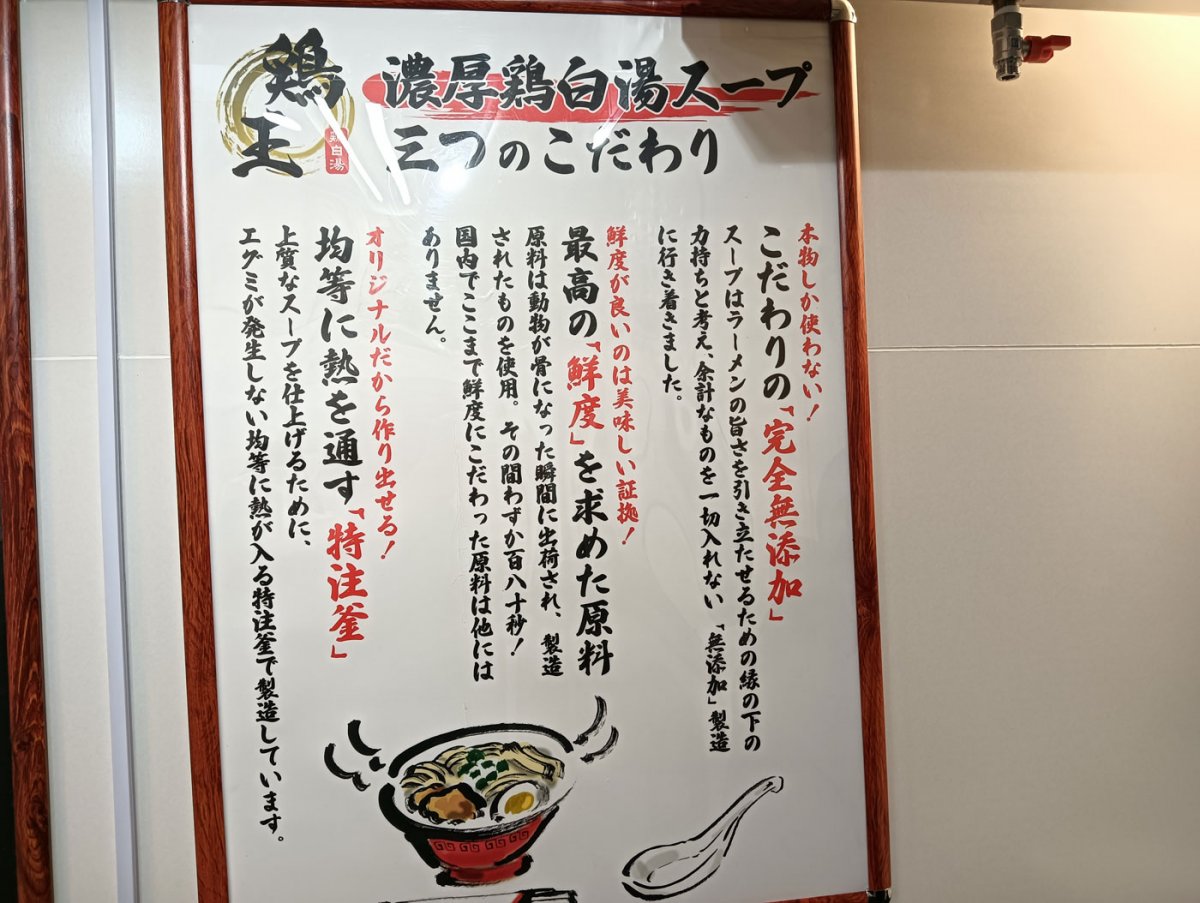 鶏王
鶏白湯
濃厚鶏白湯スープ
三つのこだわり
本物しか使わない！
こだわりの「完全無添加」
スープはラーメンの旨さを引き立たせるための縁の下の
力持ちと考え、余計なものを一切入れない「無添加」製造
に行き着きました。
鮮度が良いのは美味しい証拠！
最高の「鮮度」を求めた原料
原料は動物が骨になった瞬間に出荷され、製造
されたものを使用。その間わずか百八十秒！
国内でここまで鮮度にこだわった原料は他には
ありません。
オリジナルだから作り出せる！
均等に熱を通す「特注釜」
上質なスープを仕上げるために、
エグミが発生しない均等に熱が入る特注釜で製造しています。